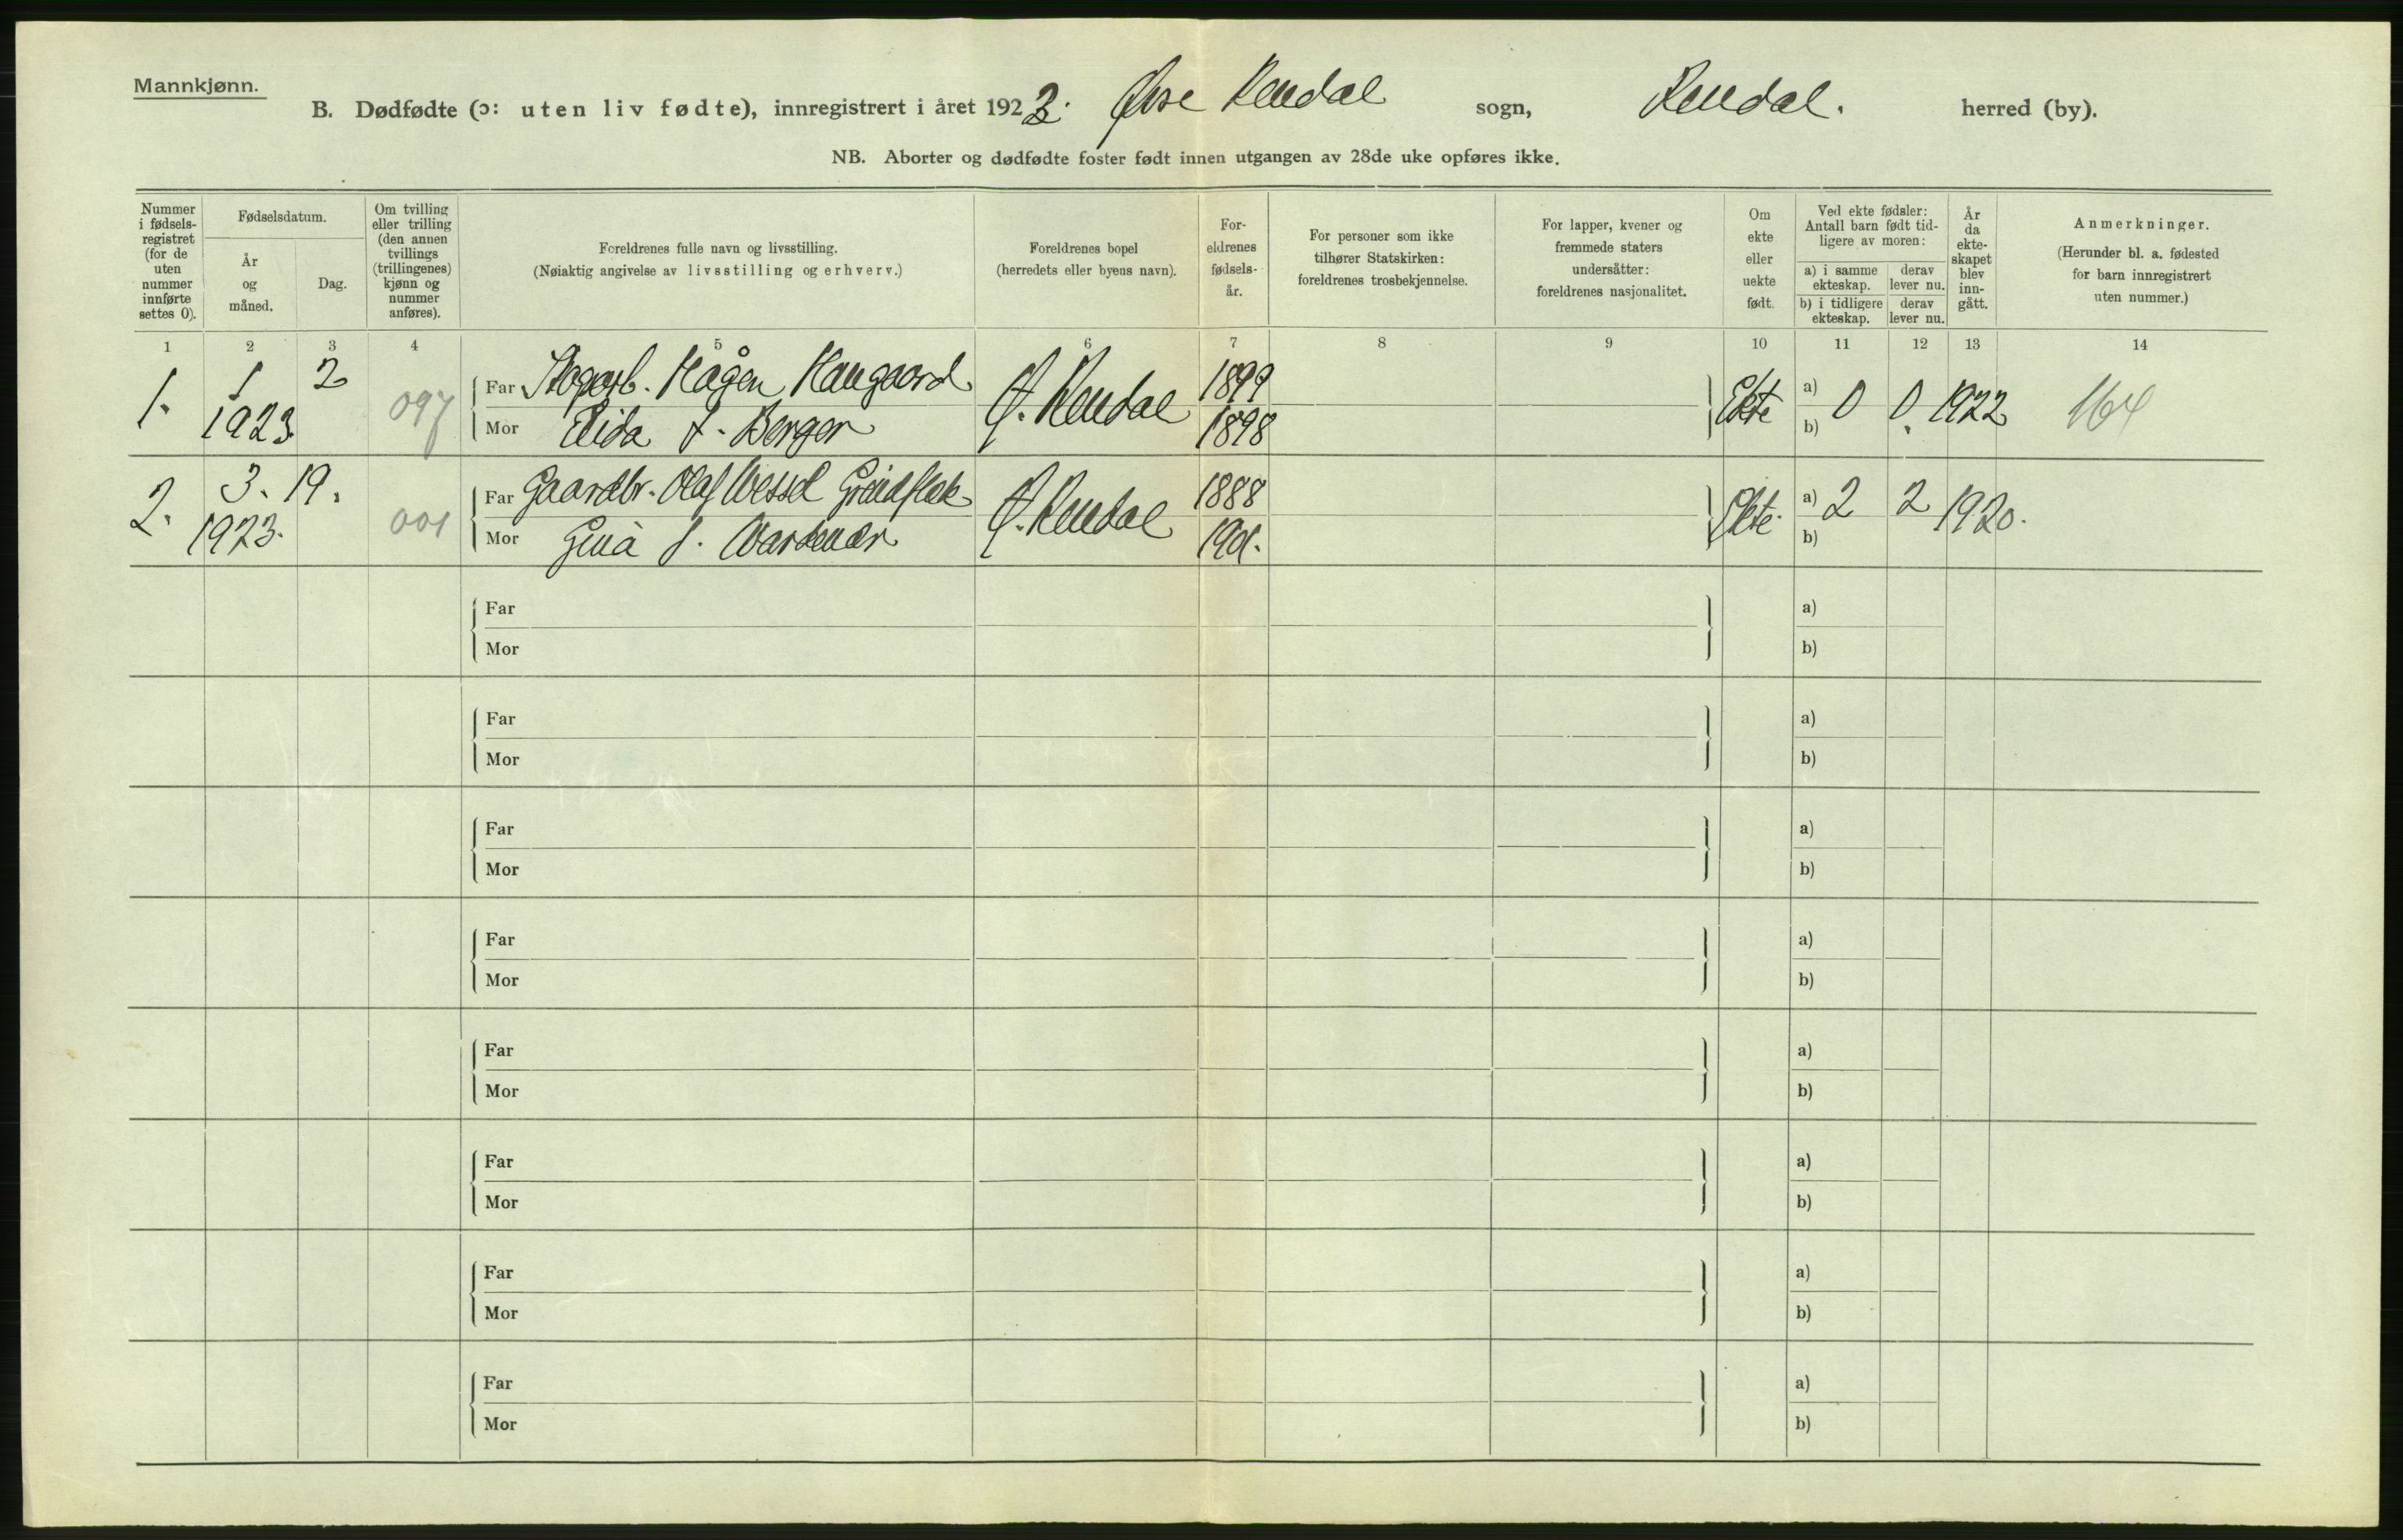 Mannkjønn.
B. Dødfødte (ɔ: uten liv fødte), innregistrert i året 1923. Øvre Rendal sogn, Rendal. herred (by).
NB. Aborter og dødfødte foster født innen utgangen av 28de uke opføres ikke.
Nummer i fødsels-registret (for de uten nummer innførte settes 0).
Fødselsdatum.
År og måned.
Dag.
Om tvilling eller trilling (den annen tvillings (trillingenes) kjønn og nummer anføres).
Foreldrenes fulle navn og livsstilling.
(Nøiaktig angivelse av livsstilling og erhverv.)
Foreldrenes bopel
(herredets eller byens navn).
For-eldrenes fødsels-år.
For personer som ikke tilhører Statskirken: foreldrenes trosbekjennelse.
For lapper, kvener og fremmede staters undersåtter: foreldrenes nasjonalitet.
Om ekte eller uekte født.
Ved ekte fødsler: Antall barn født tid-ligere av moren:
a) i samme ekteskap. derav lever nu.
b) i tidligere ekteskap. derav lever nu.
År da ekte-skapet blev inn-gått.
Anmerkninger.
(Herunder bl. a. fødested for barn innregistrert uten nummer.)
1 2 3 4 5 6 7 8 9 10 11 12 13 14
1. 1 1923 2 097 Far Skogarb. Hågen Haugaard Ø. Rendal 1899 Ekte a) 0 0 1922 164
Mor Elida Berger 1898 b)
2. 3. 1923. 19. 001 Far Gaardbr. Olaf Wessel Grindflek Ø. Rendal 1888 Ekte a) 2 2 1920.
Mor Gina J. Wardenær 1901. b)
Far a)
Mor b)
Far a)
Mor b)
Far a)
Mor b)
Far a)
Mor b)
Far a)
Mor b)
Far a)
Mor b)
Far a)
Mor b)
Far a)
Mor b)